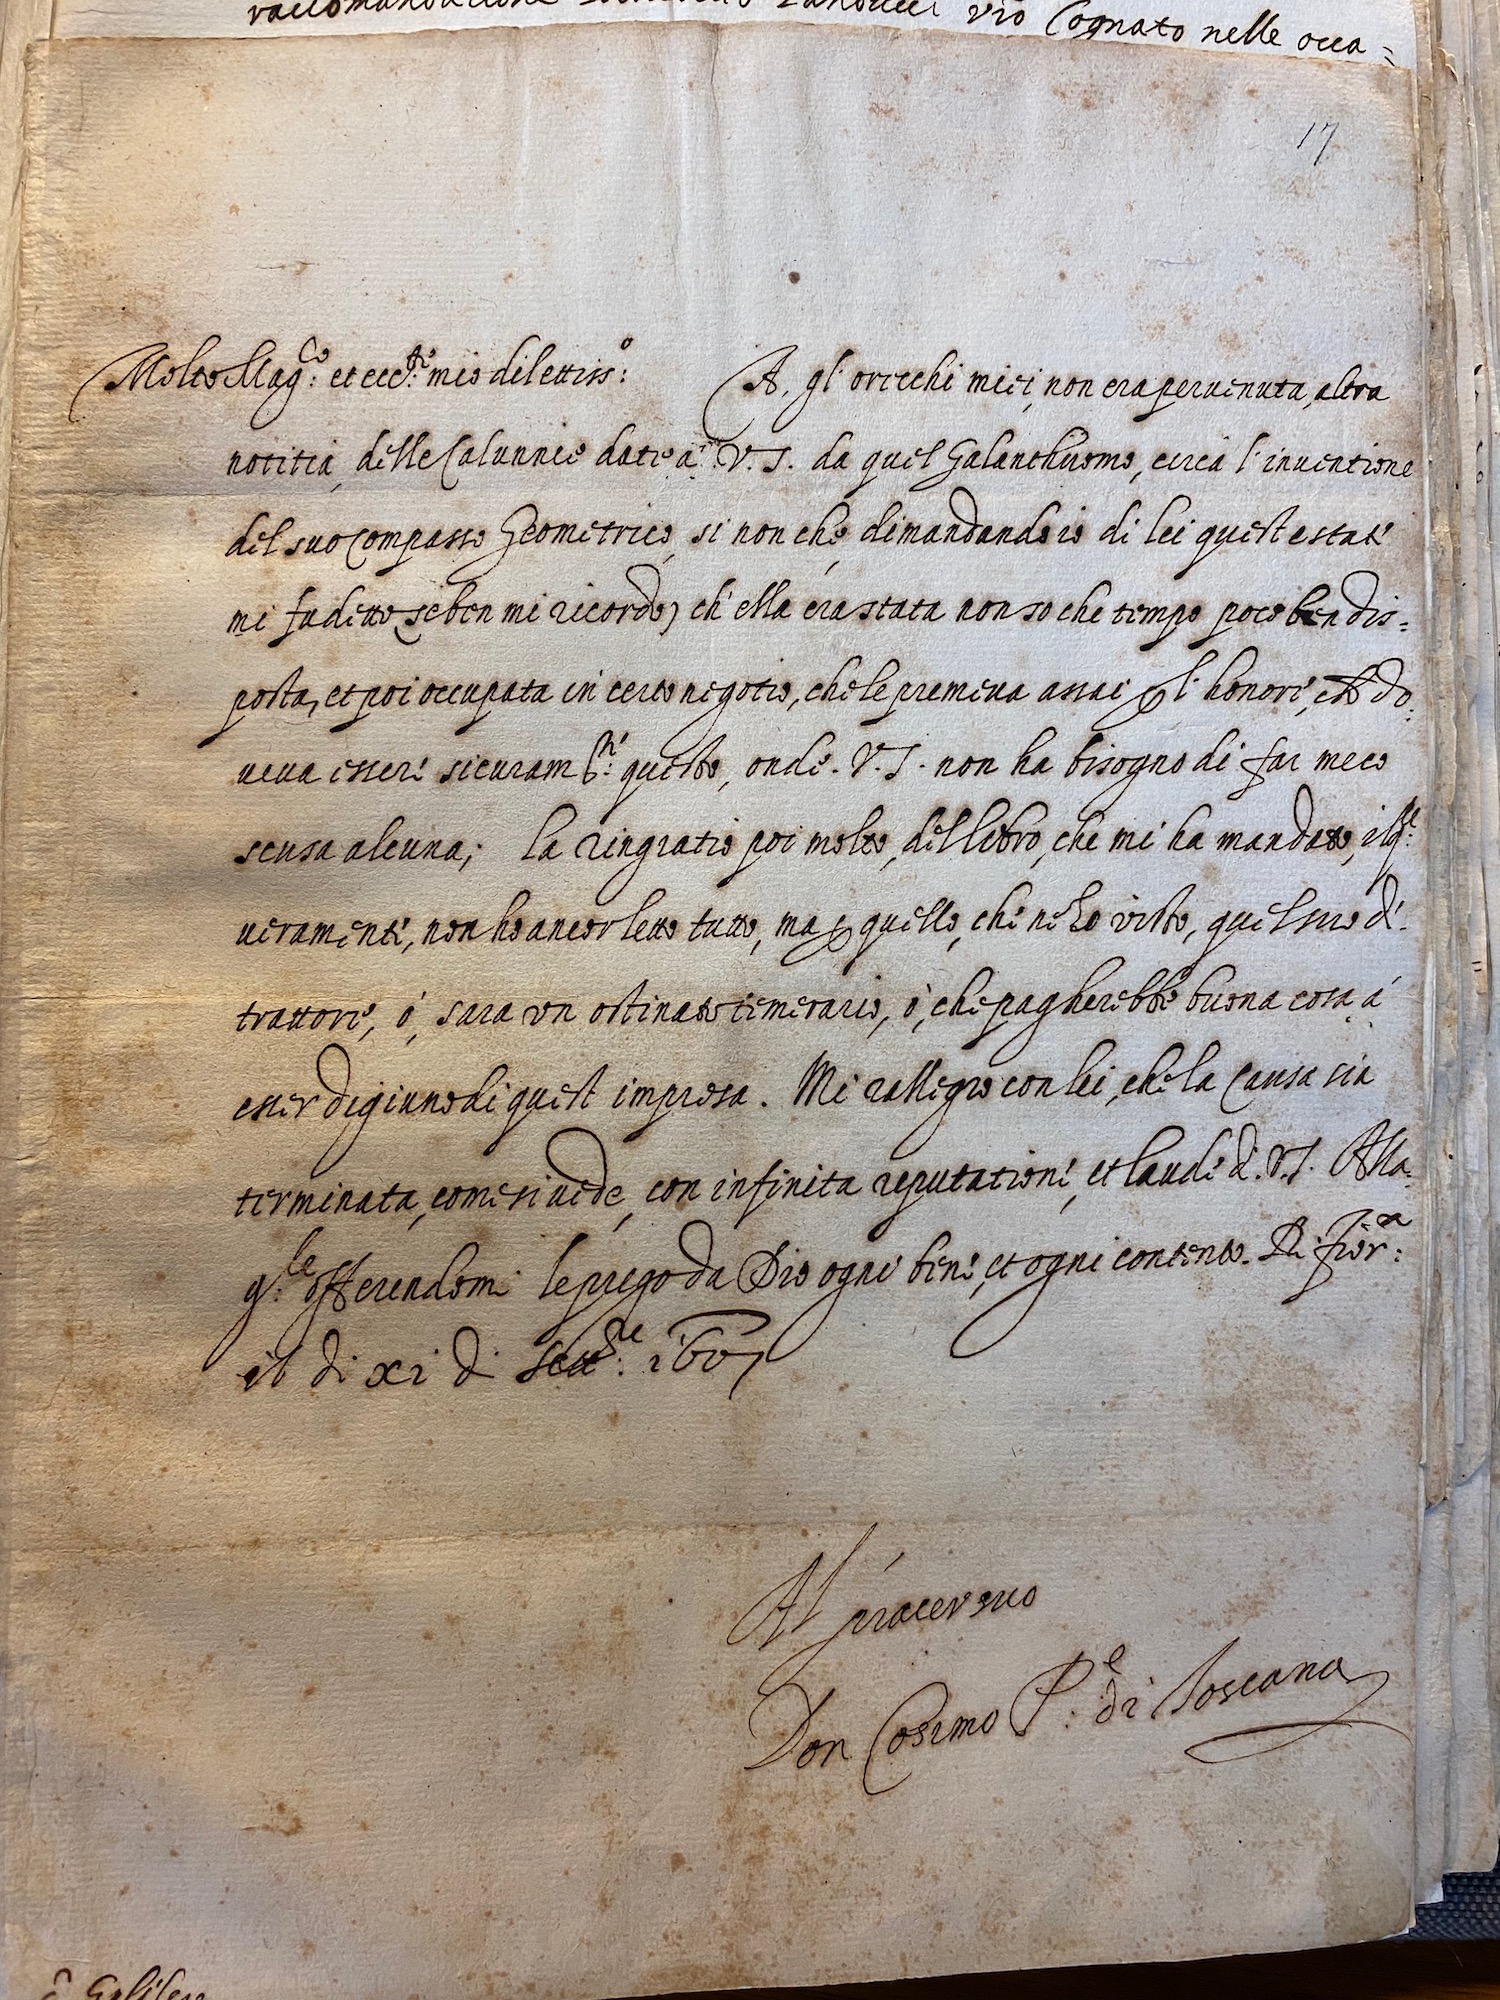 Cognato nelle occa=
17
Molto Mag.co et ecc.te mio dilettiss.o A, gl'orecchi miei, non era pervenuta, altra
notitia, delle Calunnie date à V. S. da quel Galanthuomo, circa l'inventione
del suo compasso Geometrico, si non che, dimandando io di lei quest estate
mi fu detto (se ben mi ricordo) ch' ella era stata non so che tempo poco ben dis=
posta, et poi occupata in certo negotio, che le premeva assai p l' honore, et do:
veva essere sicuram.te questo, onde. V. S. non ha bisogno di far meco
scusa alcuna; La ringratio poi molto, del libro, che mi ha mandato, il q.le
veramente, non ho ancor letto tutto, ma p quello, che ne ho visto, quel suo de.
trattore, ò, sara un ostinato temerario, ò, che pagherebbe buona cosa, à
esser digiuno di quest impresa. Mi rallegro con lei, che la Causa sia
terminata, come si vede, con infinita reputatione, et laude di. V. S. Alla.
q.le offerendomi le prego da Dio ogni bene, et ogni contento. Di Fior.za
il di xi di Sett.re 1607
Al piacer suo
Don Cosimo P.e di Toscana
Galileu